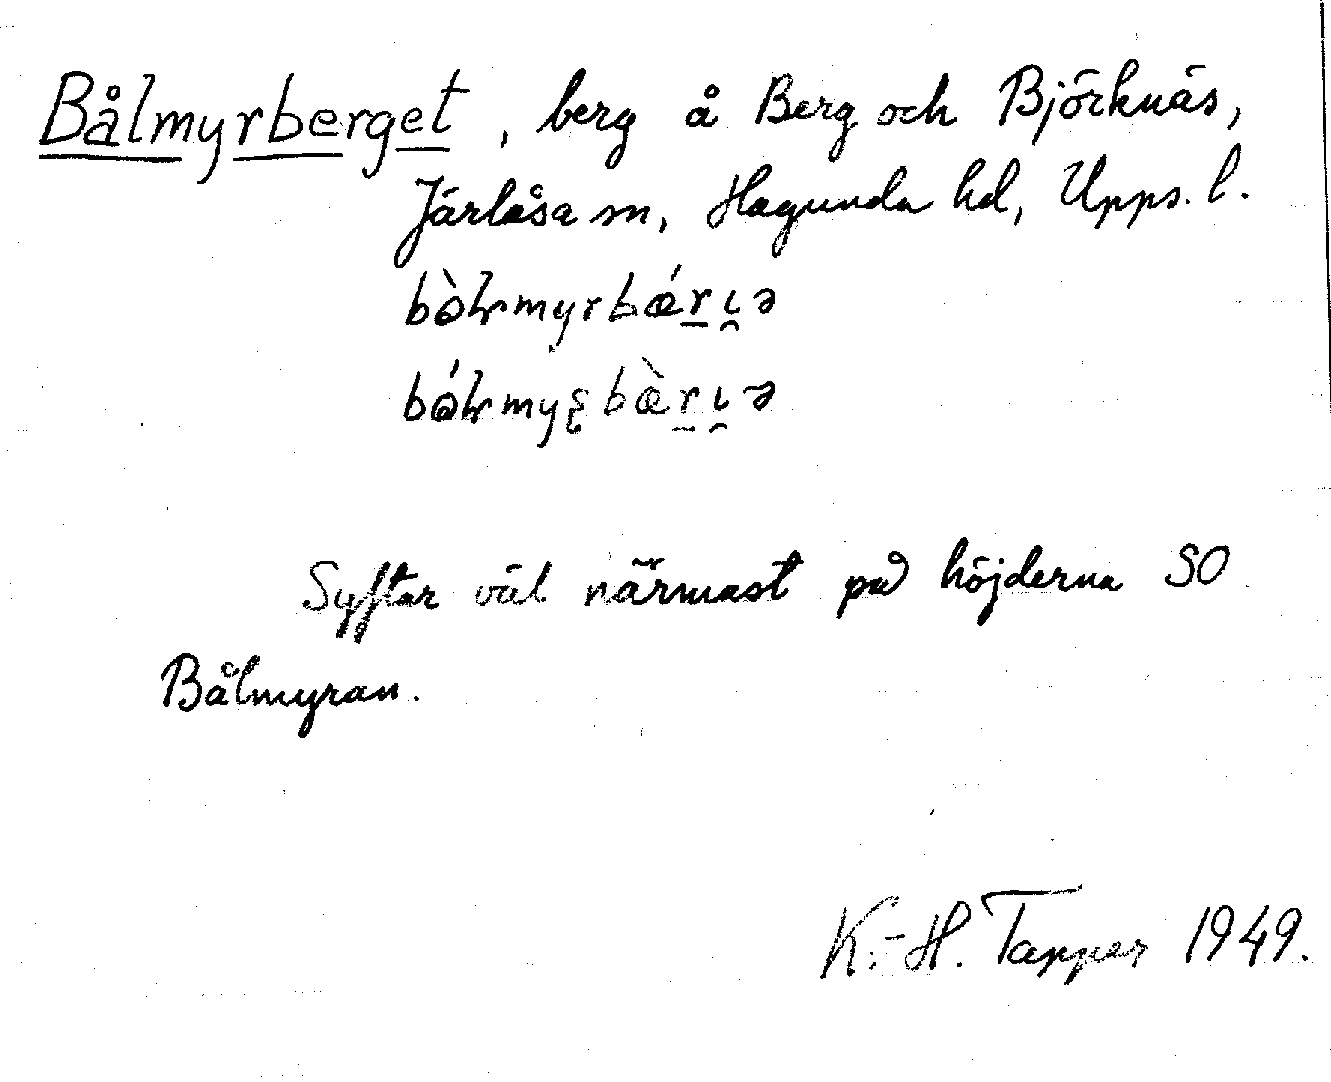 Bålmyrberget, berg å Berg och Björknäs,
Järlåsa sn, Hagunda hd, Upps. l.
Syftar väl närmast på höjderna SO
Bålmyran.
K.-H. Tapper 1949.